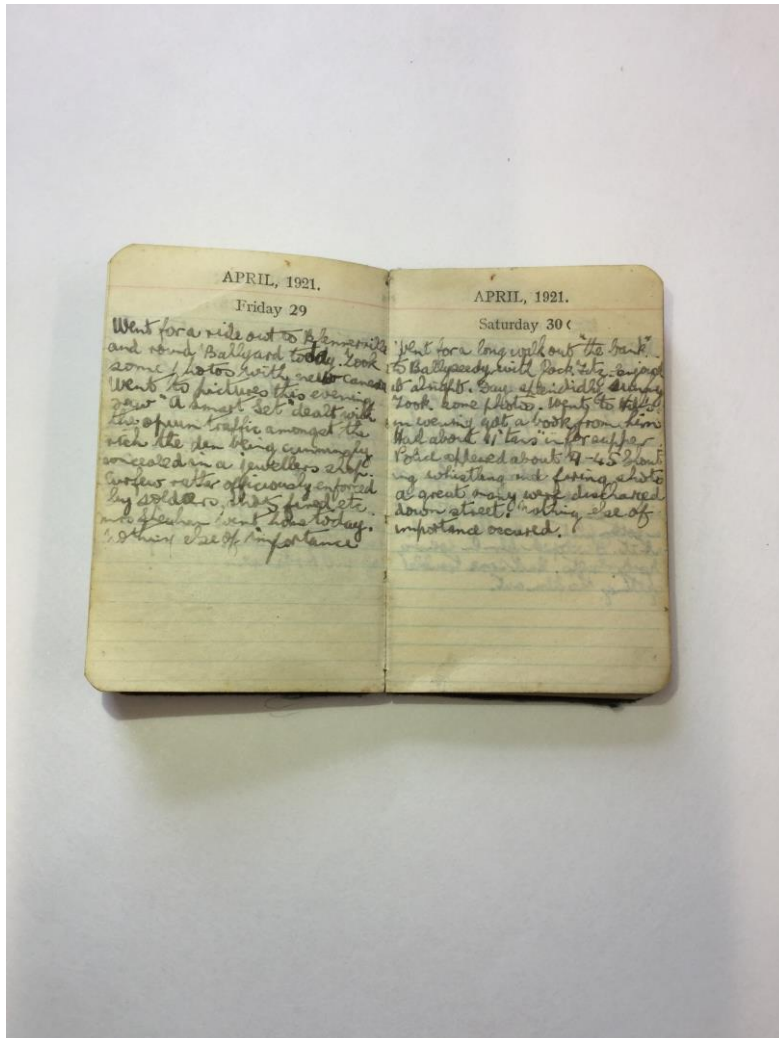 APRIL, 1921.
Friday 29
Went for a ride out to Blennerville
and round Ballyard today. Took
some photos with new camera
Went to pictures this evening
saw "A Smart Set" dealt with
the opium traffic amongst the
rich the den being cunningly
concealed in a jewellers shop.
Curfew rather officiously enforced
by soldiers, shots fired etc
Mrs went home today.
Nothing else of importance
APRIL, 1921.
Saturday 30
Went for a long walk out "the bank"
to Ballyseedy with Jack Fitz enjoyed
it alright. Day splendidly sunny
Took some photos. Went to
in evening got a book from him
Had about 11 in for supper
Police appeared about 9-45 shout
ing whistling and firing shots
a great many were discharged
down street. Nothing else of
importance occured.